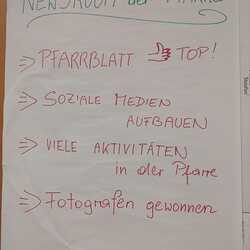 NEWSROOM der PFARRE
⇒ PFARRBLATT TOP!
⇒ SOZIALE MEDIEN
AUFBAUEN
⇒ VIELE AKTIVITÄTEN
in der Pfarre
⇒ Fotografen gewonnen